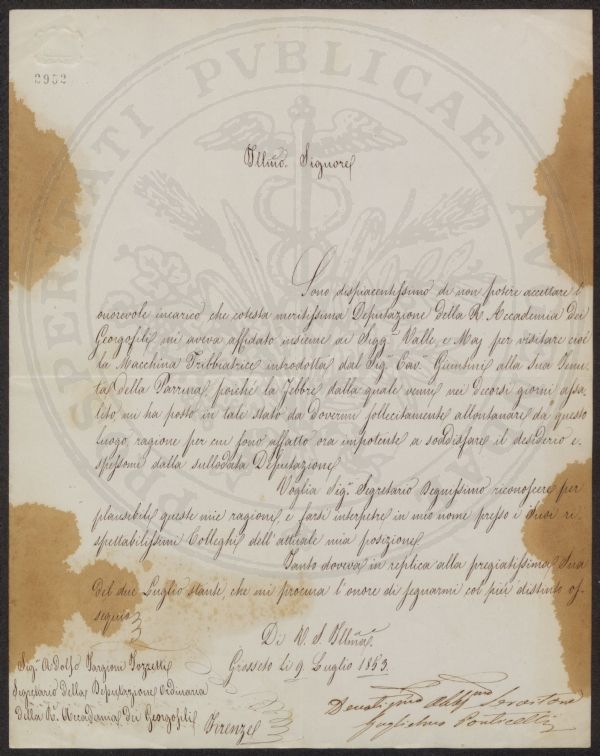 2952
Illmo. Signore
Sono dispiacentissimo di non potere accettare l'
onorevole incarico che cotesta meritissima Deputazione della R. Accademia dei
Georgofili mi aveva affidato insieme ai Sigg.ri Valle, e Maj per visitare cioè
la Macchina Tribbiatrice introdotta dal Sig.r Cav.r alla Sua Tenu-
ta della Parrina, poiché la Febbre dalla quale venni nei decorsi giorni assa-
lito, mi ha posto in tale stato da dovermi sollecitamente allontanare da questo
luogo, ragione per cui sono affatto ora impotente a soddisfare il desiderio e-
spressomi dalla sullodata Deputazione.
Voglia Sig.r Segretario Degnissimo riconoscere per
plausibili queste mie ragioni, e farsi interpetre in mio nome presso i Suoi ri-
spettabilissimi Colleghi dell'attuale mia posizione.
Tanto doveva in replica alla pregiatissima Sua
del due Luglio stante, che mi procura l'onore di segnarmi col più distinto os-
sequio
Di V. S. Illma.
Grosseto li 9 Luglio 1853.
Sig.r Adolfo Targioni Tozzetti
Segretario della Deputazione Ordinaria
della R. Accademia dei Georgofili
Firenze
Devotissimo Servitore
Guglielmo Ponticelli
PERITATI PVBLICAE